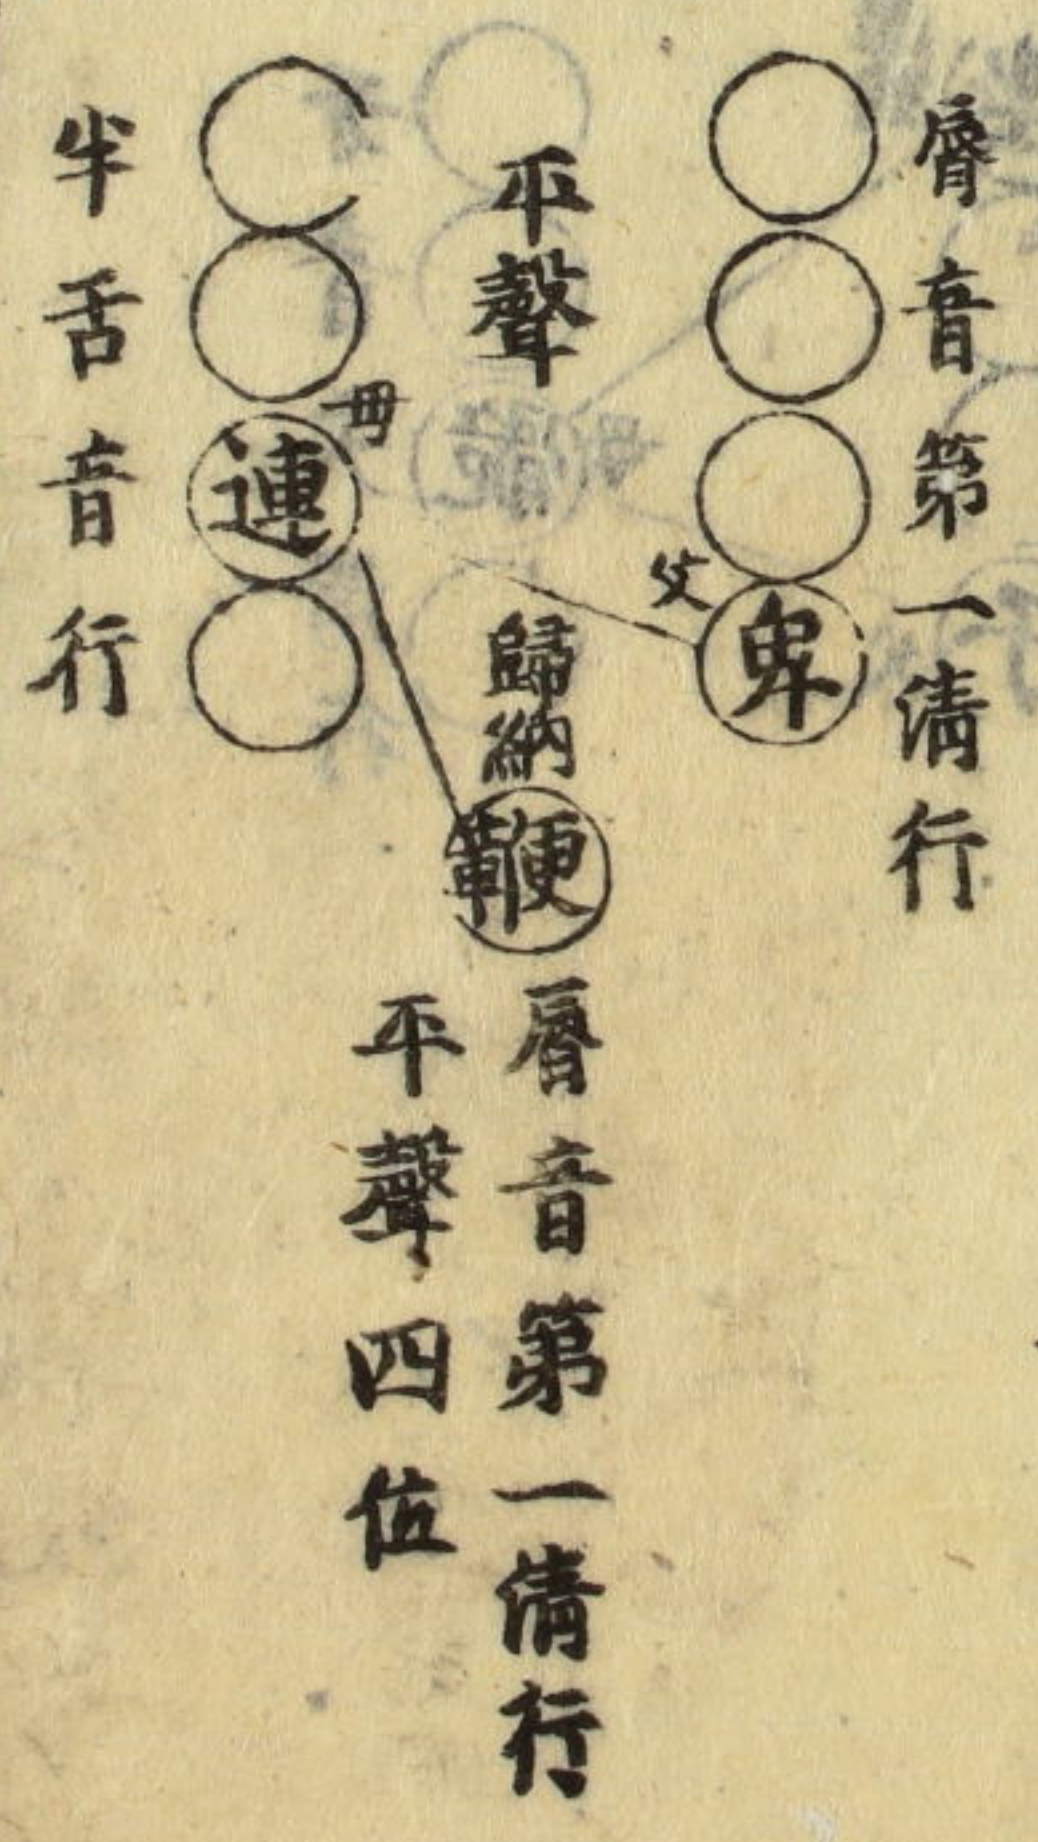 脣音第一清行
卑
父
平聲
歸納
鞭
脣音第一清行
平聲四位
毋
連
半舌音行